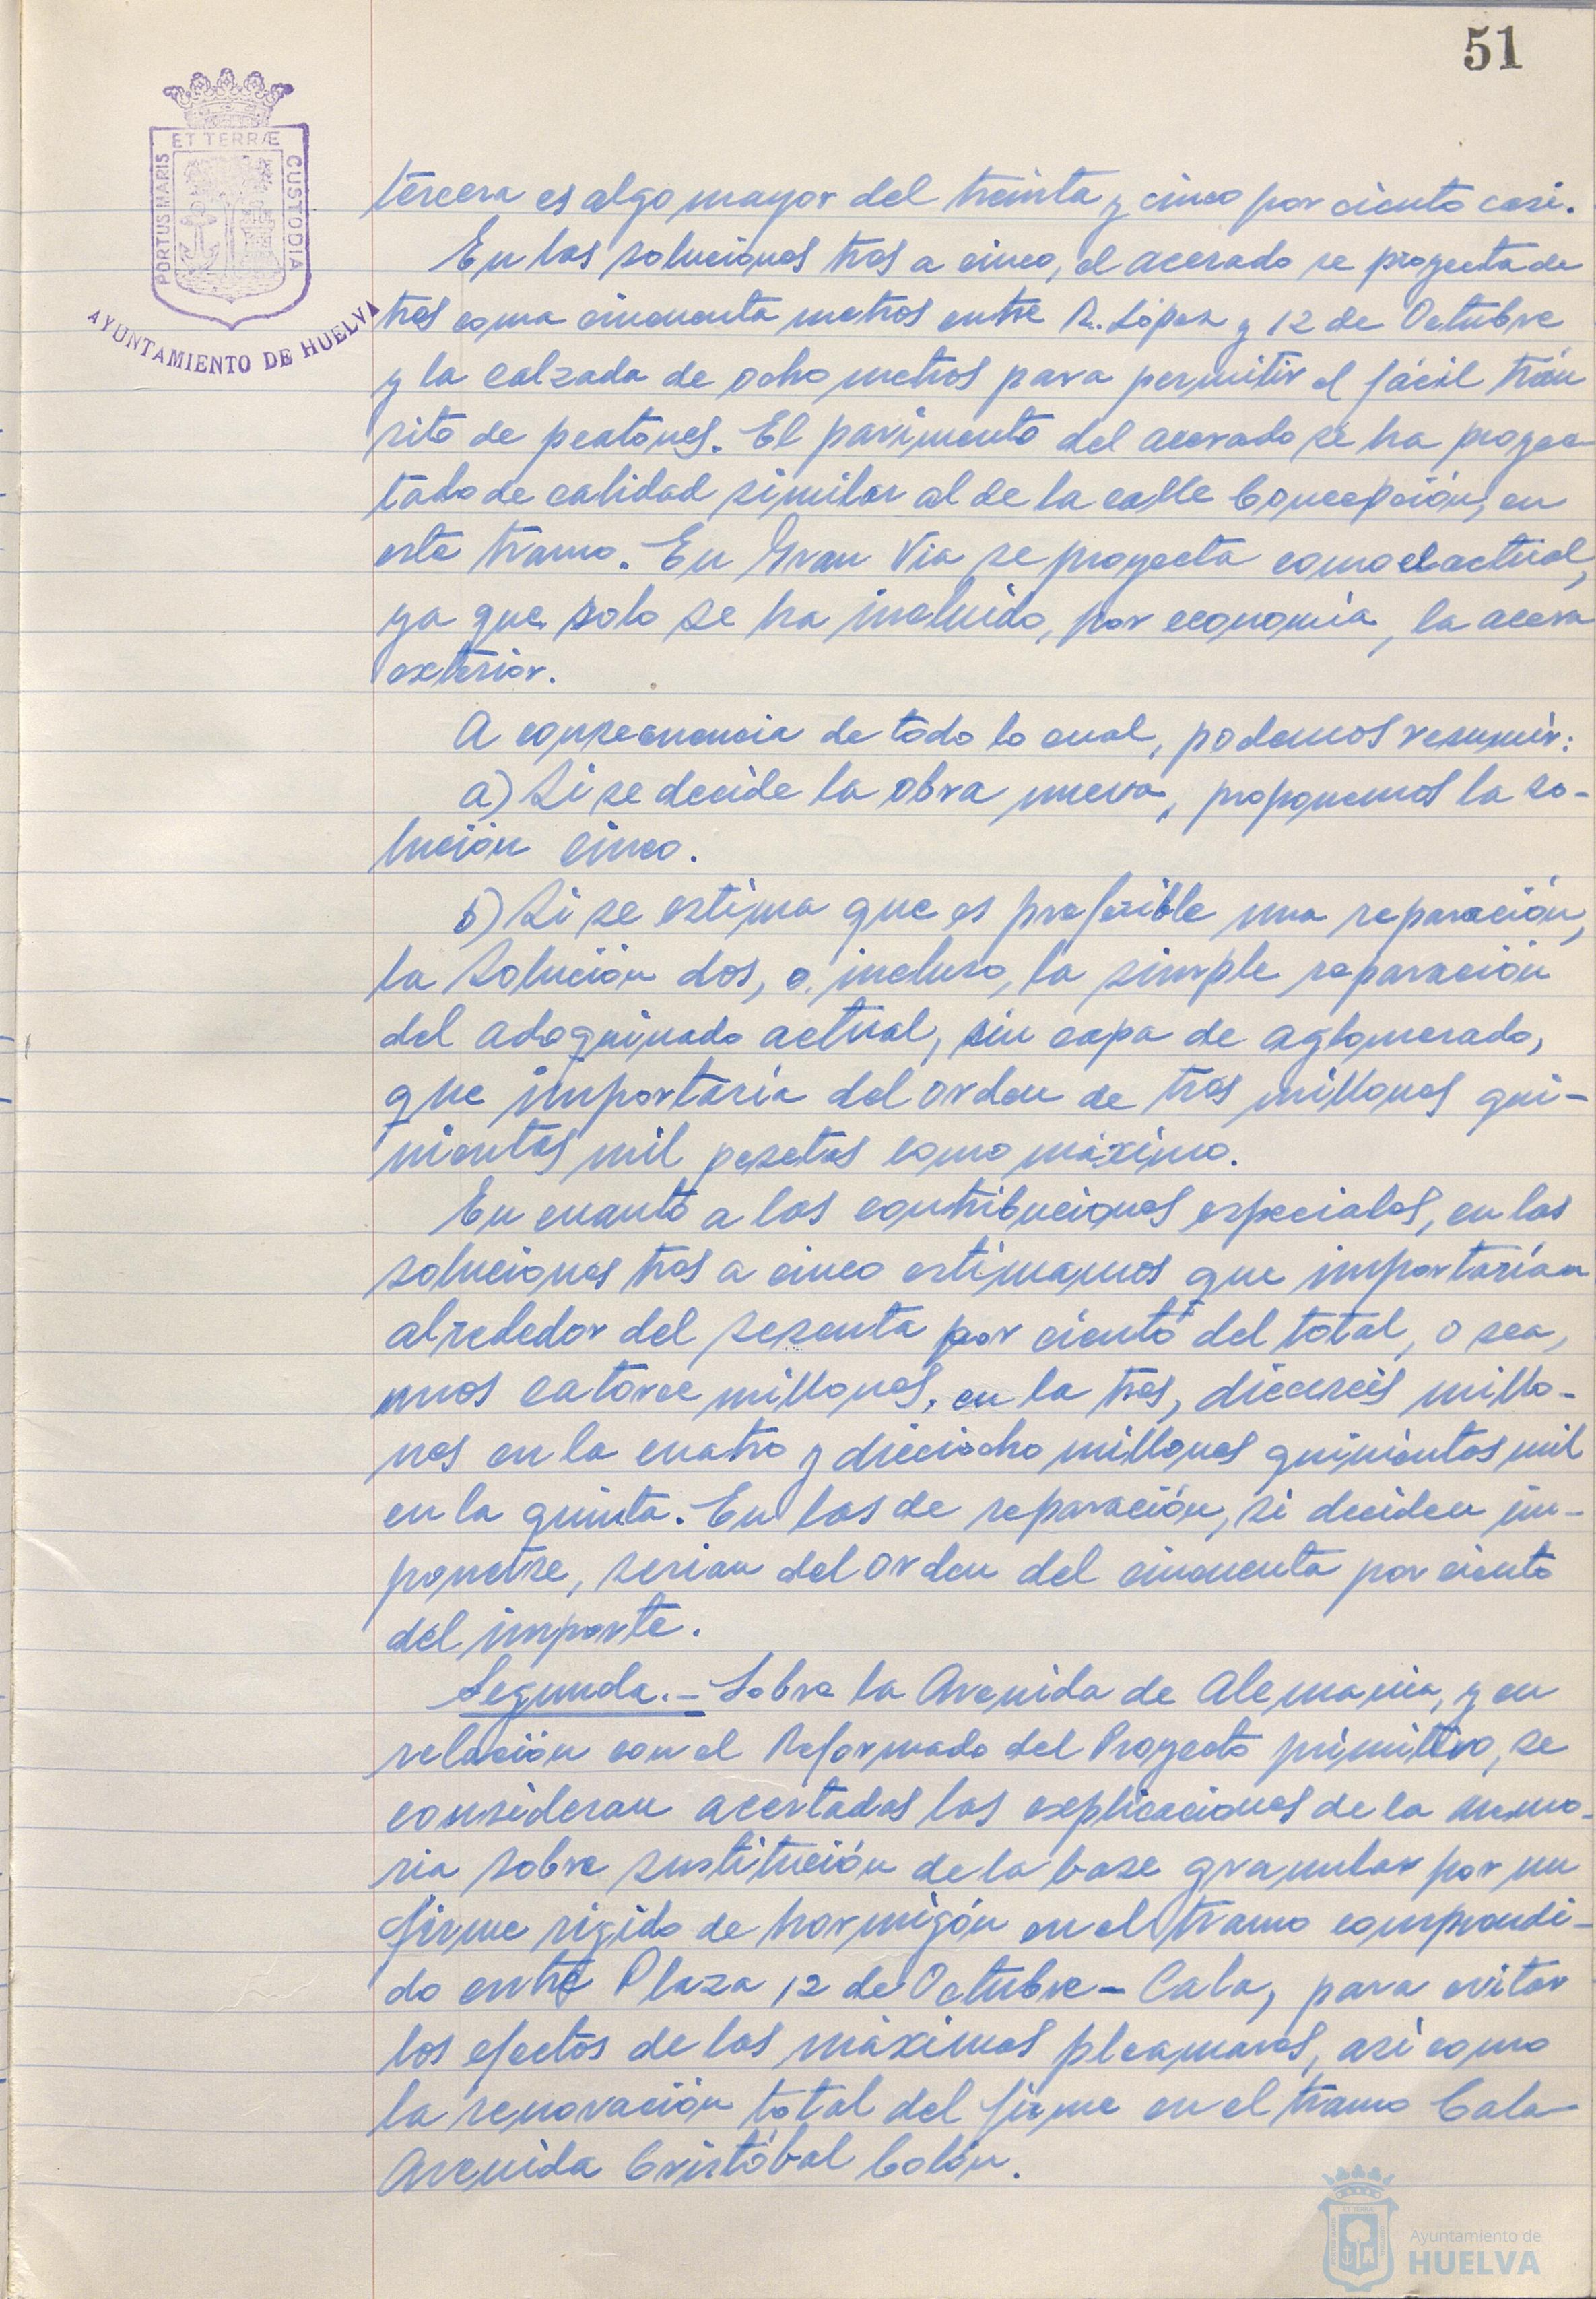 51
ET TERRÆ
PORTUS MARIS
CUSTODIA
AYUNTAMIENTO DE HUELVA
tercera es algo mayor del treinta y cinco por ciento casi.
En las soluciones tres a cinco, el acerado se proyecta de
tres coma cincuenta metros entre R. López y 12 de Octubre
y la calzada de ocho metros para permitir el fácil trán
sito de peatones. El pavimento del acerado se ha proyec
tado de calidad similar al de la calle Concepción, en
este tramo. En Gran Via se proyecta como el actual,
ya que solo se ha incluido, por economía, la acera
exterior.
A consecuencia de todo lo cual, podemos resumir:
a) Si se decide la obra nueva, proponemos la so-
lución cinco.
b) Si se estima que es preferible una reparación,
la solución dos, o incluso, la simple reparación
del adoquinado actual, sin capa de aglomerado,
que importaría del orden de tres millones qui-
nientas mil pesetas como máximo.
En cuanto a las contribuciones especiales, en las
soluciones tres a cinco estimamos que importarían
alrededor del sesenta por ciento del total, o sea,
unos catorce millones, en la tres, dieciseis millo-
nes en la cuatro y dieciocho millones quinientas mil
en la quinta. En las de reparación, si deciden im-
ponerse, serian del orden del cincuenta por ciento
del importe.
Segunda.- Sobre la Avenida de Alemania, y en
relación con el Reformado del Proyecto primitivo, se
consideran acertadas las explicaciones de la memo-
ria sobre sustitución de la base granular por un
firme rigido de hormigón en el tramo comprendi-
do entre Plaza 12 de Octubre - Cala, para evitar
los efectos de las máximas pleamares, asi como
la renovación total del firme en el tramo Cala-
Avenida Cristóbal Colón.
Ayuntamiento de
HUELVA